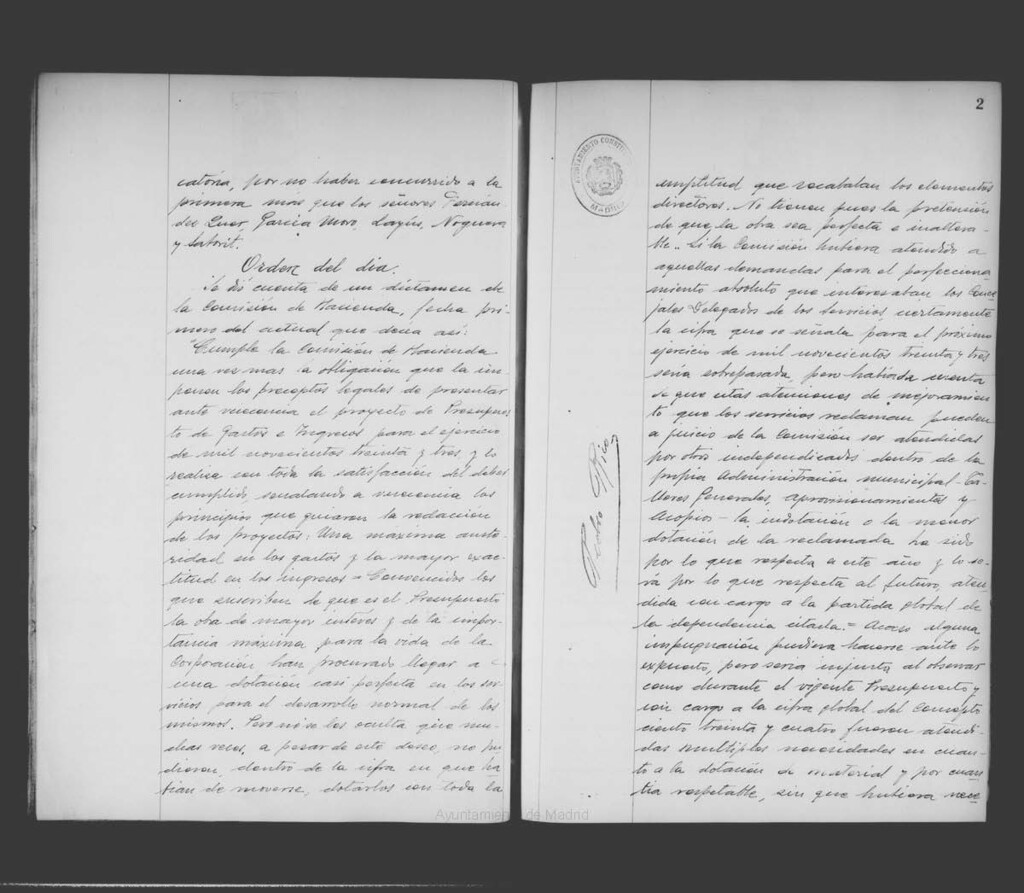 catoria, por no haber concurrido a la
primera mas que los señores Fernan-
dez Quer, García Moro, Layús, Noguera
y Saborit.
Orden del dia.
Se dá cuenta de un dictamen de
la Comisión de Hacienda, fecha pri-
mero del actual que decia así:
"Cumple la Comisión de Hacienda
una vez mas la obligación que la im-
ponen los preceptos legales de presentar
ante vuecencia el proyecto de Presupues-
to de Gastos e Ingresos para el ejercicio
de mil novecientos treinta y tres, y lo
realiza con toda la satisfacción del deber
cumplido, señalando a vuecencia los
principios que guiaron la redacción
de los proyectos: Una máxima auste-
ridad en los gastos y la mayor exac-
titud en los ingresos = Convencidos los
que suscriben de que es el Presupuesto
la obra de mayor interes y de la impor-
tancia máxima para la vida de la
Corporación han procurado llegar a
una dotación casi perfecta en los ser-
vicios para el desarrollo normal de los
mismos. Pero no se les oculta que mu-
chas veces, a pesar de este deseo, no pu-
dieron, dentro de la cifra en que ha-
bian de moverse, dotarlos con toda la
2
AYUNTAMIENTO
MADRID
amplitud que recababan los elementos
directores. No tienen pues la pretensión
de que la obra sea perfecta e inaltera-
ble. Si la Comisión hubiera atendido a
aquellas demandas para el perfecciona-
miento absoluto que interesaban los Conce-
jales Delegados de los Servicios ciertamente
la cifra que se señala para el próximo
ejercicio de mil novecientos treinta y tres
seria sobrepasada, pero habida cuenta
de que estas atenciones de mejoramien-
to que los servicios reclaman pueden
a juicio de la Comisión ser atendidas
por otro independizados dentro de la
propia Administración municipal - Ta-
lleres Generales, Aprovisionamientos y
Acopios - la indotación o la menor
dotación de la reclamada ha sido
por lo que respecta a este año y lo se-
rá por lo que respecta al futuro, aten-
dida con cargo a la partida global de
la dependencia citada. = Acaso alguna
impugnación pudiera hacerse ante lo
expuesto, pero seria injusta al observar
como durante el vigente Presupuesto y
con cargo a la cifra global del Concepto
ciento treinta y cuatro fueron atendi-
das multiples necesidades en cuan-
to a la dotación de material y por cuan-
tia respetable, sin que hubiera nece
Ayuntamiento de Madrid